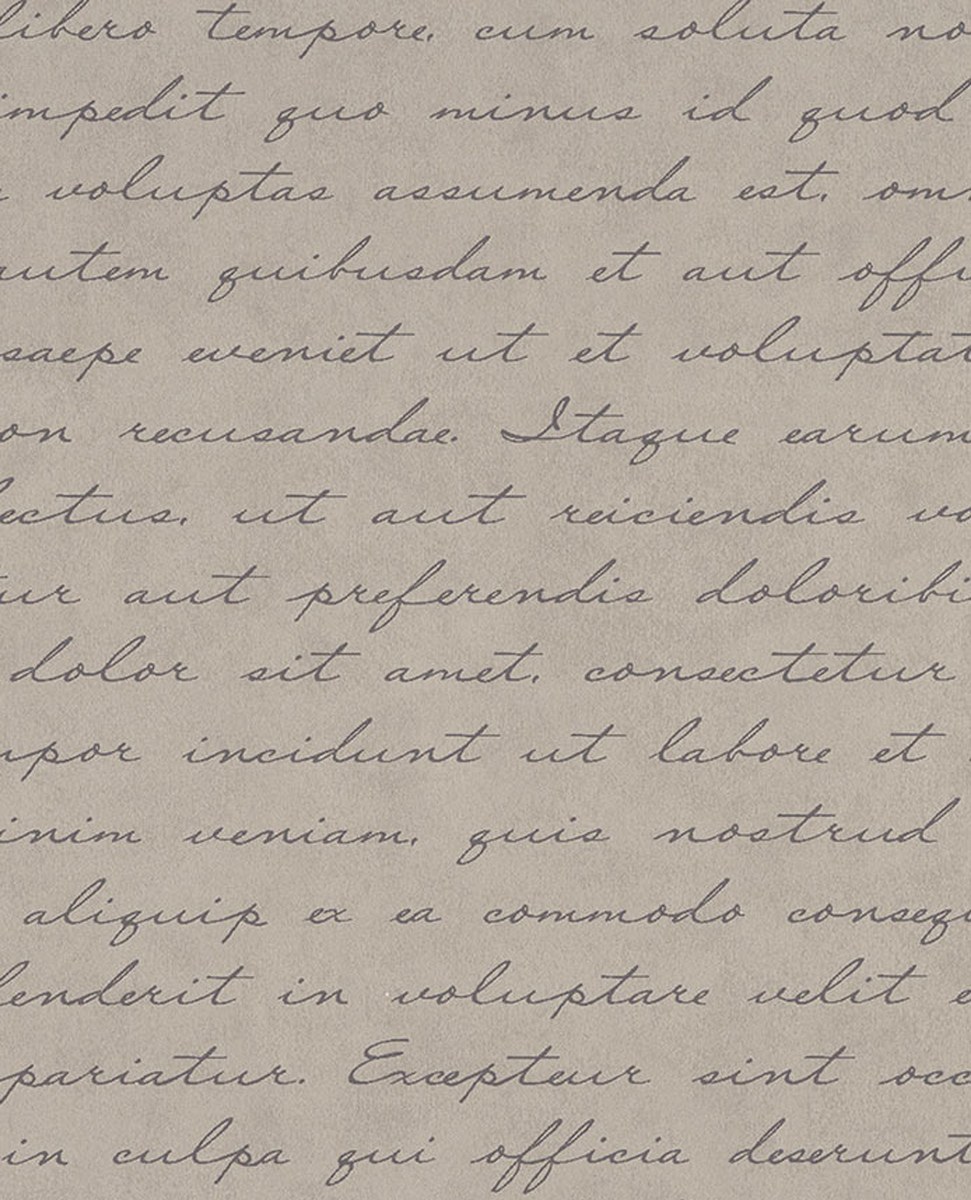 libero tempore, cum soluta no
impedit quo minus id quod
voluptas assumenda est, om
autem quibusdam et aut offi
saepe eveniet ut et voluptat
on recusandae. Itaque earum
lectus, ut aut reiciendis vo
ur aut preferendis doloribi
dolor sit amet, consectetur
mpor incidunt ut labore et
inim veniam, quis nostrud
aliquip ex ea commodo consequ
henderit in voluptare velit e
pariatur. Excepteur sint occ
in culpa qui officia deserunt